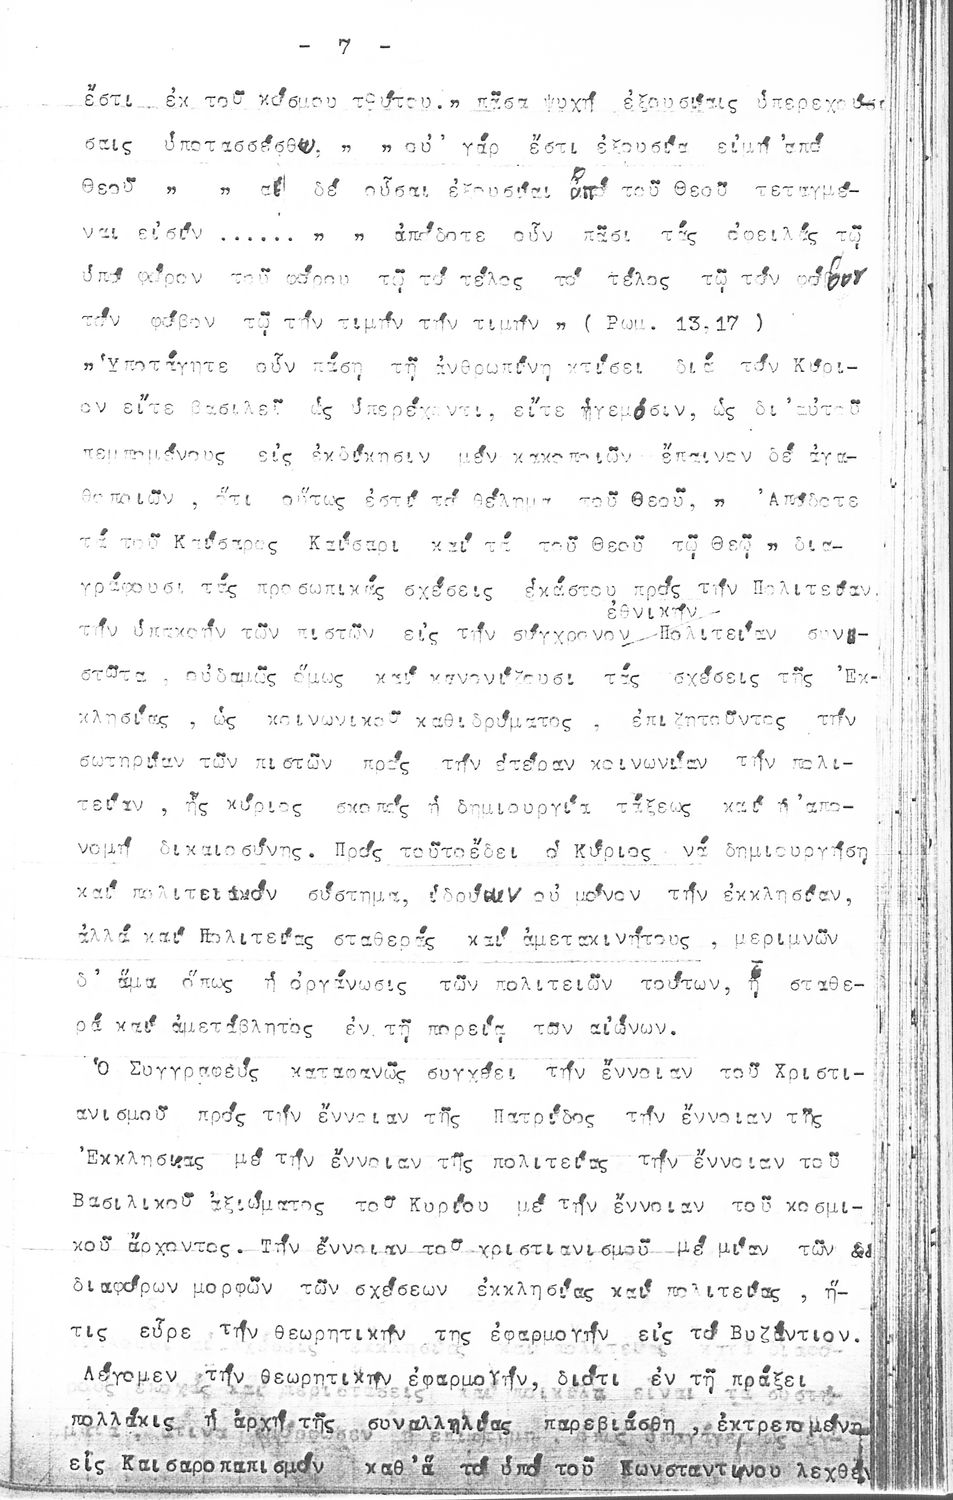 - 7 -
ἔστι ἐκ τοῦ κόσμου τούτου." πᾶσα ψυχή ἐξουσίαις ὑπερεχούσ
σαις ὑποτασσέσθω, " " οὐ' γάρ ἔστι ἐξουσία εἰμή 'από
Θεοῦ " " αἱ δέ οὖσαι ἐξουσίαι ὑπό τοῦ Θεοῦ τεταγμέ-
ναι εἰσίν ...... " " ἀπόδοτε οὖν πᾶσι τάς ὀφειλάς τῷ
τόν φόρον τοῦ φόρου τῷ τό τέλος τό τέλος τῷ τόν φόβον
τόν φόβον τῷ τήν τιμήν τήν τιμήν " ( Ρωμ. 13,17 )
"Ὑποτάγητε οὖν πάσῃ τῇ ἀνθρωπίνῃ κτίσει διά τόν Κύρι-
ον εἴτε βασιλεῖ ὡς ὑπερέχοντι, εἴτε ἡγεμόσιν, ὡς δι'αὐτοῦ
πεμπομένους εἰς ἐκδίκησιν μέν κακοποιῶν ἔπαινον δέ ἀγα-
θοποιῶν , ὅτι οὕτως ἐστί τό θέλημα τοῦ Θεοῦ, " 'Απόδοτε
τά τοῦ Καίσαρος Καίσαρι καί τά τοῦ Θεοῦ τῷ Θεῷ " δια-
γράφουσι τάς προσωπικάς σχέσεις ἑκάστου πρός τήν Πολιτείαν,
ἐθνικήν
τήν ὑπακοήν τῶν πιστῶν εἰς τήν σύγχρονον Πολιτείαν συνι-
στῶτα , οὐδαμῶς ὅμως καί κανονίζουσι τάς σχέσεις τῆς 'Εκ-
κλησίας , ὡς κοινωνικοῦ καθιδρύματος , ἐπιζητοῦντος τήν
σωτηρίαν τῶν πιστῶν πρός τήν ἑτέραν κοινωνίαν τήν πολι-
τείαν , ἧς κύριος σκοπός ἡ δημιουργία τάξεως καί ἡ 'απο-
νομή δικαιοσύνης. Πρός τοῦτοἔδει ὁ Κύριος νά δημιουργήσῃ
καί πολιτειακόν σύστημα, ἱδρύων οὐ μόνον τήν ἐκκλησίαν,
ἀλλά καί Πολιτείας σταθεράς καί ἀμετακινήτους , μεριμνῶν
δ' ἅμα ὅπως ἡ ὀργάνωσις τῶν πολιτειῶν τούτων, ᾖ σταθε-
ρά καί ἀμετάβλητος ἐν τῇ πορείᾳ των αἰώνων.
Ὁ Συγγραφεύς καταφανῶς συγχέει τήν ἔννοιαν τοῦ Χριστι-
ανισμοῦ πρός τήν ἔννοιαν τῆς Πατρίδος τήν ἔννοιαν τῆς
'Εκκλησίας μέ τήν ἔννοιαν τῆς πολιτείας τήν ἔννοιαν τοῦ
Βασιλικοῦ ἀξιώματος τοῦ Κυρίου μέ τήν ἔννοιαν τοῦ κοσμι-
κοῦ ἄρχοντος. Τήν ἔννοιαν τοῦ χριστιανισμοῦ μέ μίαν τῶν
διαφόρων μορφῶν τῶν σχέσεων ἐκκλησίας καί πολιτείας , ἥ-
τις εὗρε τήν θεωρητικήν της ἐφαρμογήν εἰς τό Βυζάντιον.
Λέγομεν τήν θεωρητικήν ἐφαρμογήν, διότι ἐν τῇ πράξει
πολλάκις ἡ ἀρχή τῆς συναλληλίας παρεβιάσθη , ἐκτρεπομένη
εἰς Καισαροπαπισμόν καθ'ἅ τό ὑπό τοῦ Κωνσταντίνου λεχθέν